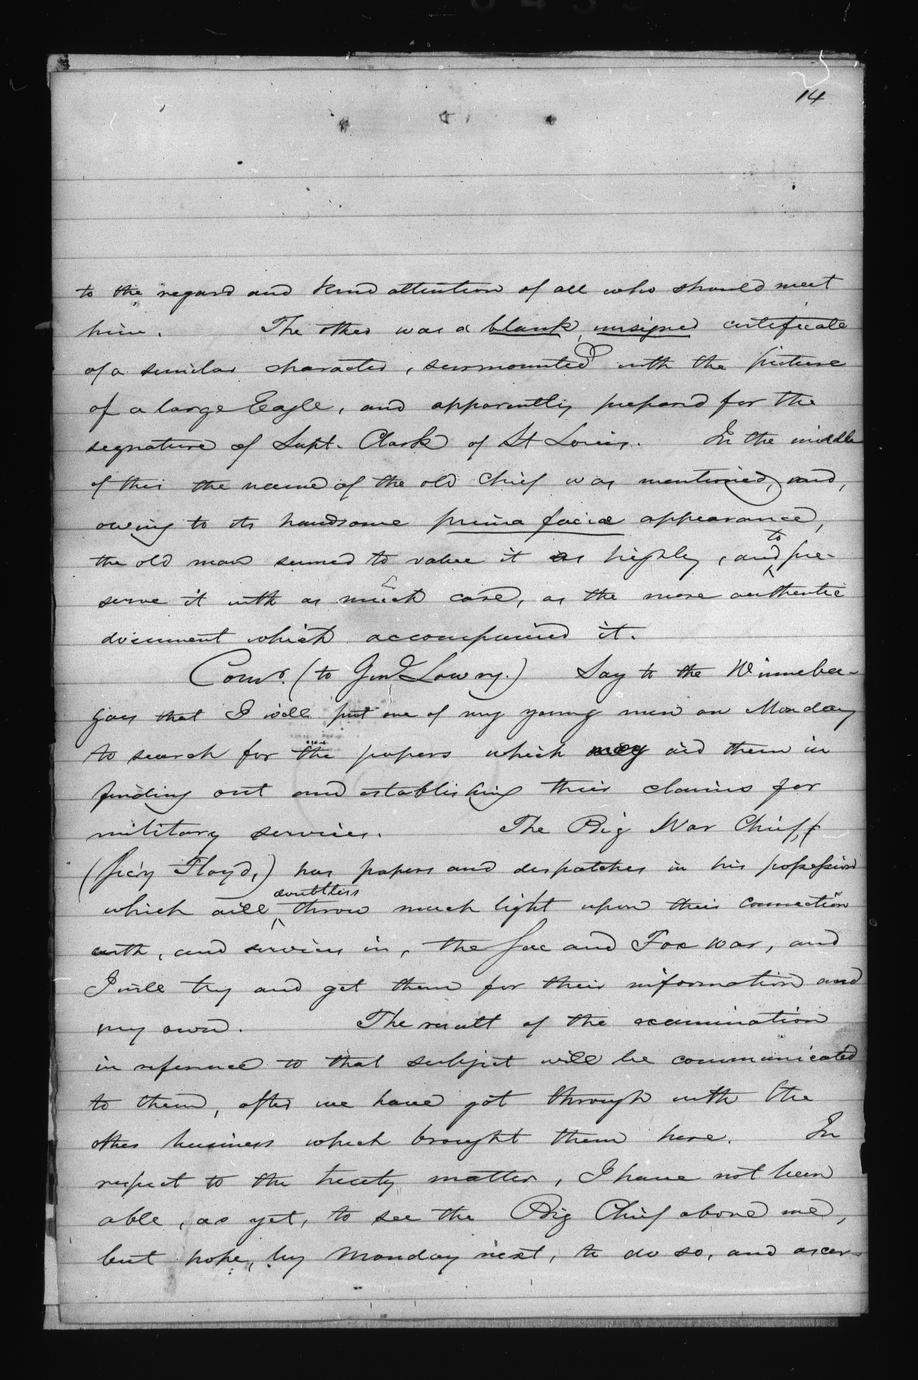 14
to the regard and kind attention of all who should meet
him. The other was a blank, unsigned certificate
of a similar character, surmounted with the picture
of a large Eagle, and apparently prepared for the
signature of Supt. Clark of St Louis. In the middle
of this the name of the old chief was mentioned, and,
owing to its handsome prima faciæ appearance,
the old man seemed to value it as highly, and to pre-
serve it with as much care, as the more authentic
document which accompanied it.
Comr. (to Genl Lowry.) Say to the Winneba-
goes that I will put one of my young men on Monday
to search for the papers which may aid them in
finding out and establishing their claims for
military services. The Big War Chief,
(Sec'y Floyd,) has papers and despatches in his possession
which will doubtless throw much light upon their connection
with, and services in, the Sac and Fox war, and
I will try and get them for their information and
my own. The result of the examination
in reference to that subject will be communicated
to them, after we have got through with the
other business which brought them here. In
respect to the treaty matter, I have not been
able, as yet, to see the Big Chief above me,
but hope, by Monday next, to do so, and ascer-